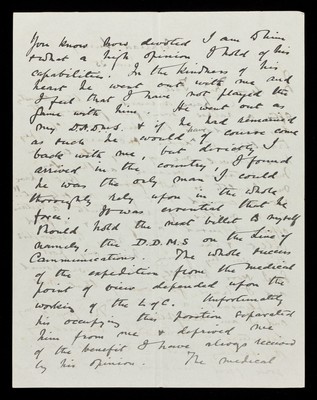 You know how devoted I am to him
& what a high opinion I hold of his
capabilities. In the kindness of his
heart he went out with me and
I feel that I have not played the
game with him. He went out as
my D.A.D.M.S. & if he had remained
as such he would have of course come
back with me, but directly I
arrived in the country I found
he was the only man I could
thoroughly rely upon in the whole
force. It was essential that he
should hold the next billet to myself
namely, the D.D.M.S on the Line of
Communications. The whole success
of the expedition from the medical
point of view depended upon the
working of the L of C. Unfortunately
his occupying this position separated
him from me & deprived me
of the benefit I have always received
by his opinion. The medical